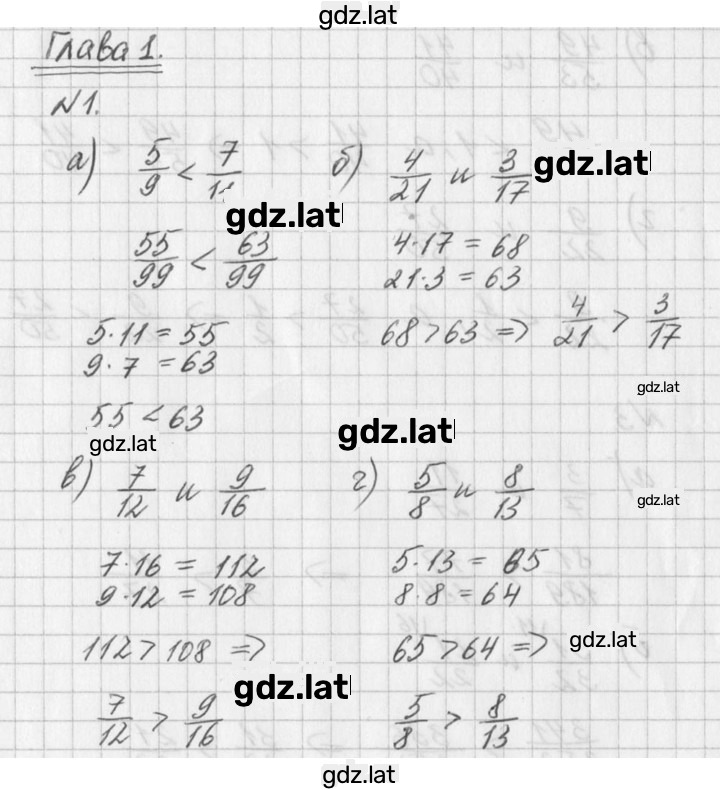 gdz.lat
Глава 1.
N1.
а) 5/9 < 7/11
gdz.lat
55/99 < 63/99
5·11 = 55
9·7 = 63
55 < 63
gdz.lat
б) 4/21 и 3/17
gdz.lat
4·17 = 68
21·3 = 63
68 > 63 => 4/21 > 3/17
gdz.lat
gdz.lat
в) 7/12 и 9/16
7·16 = 112
9·12 = 108
112 > 108 =>
gdz.lat
7/12 > 9/16
г) 5/8 и 8/13
gdz.lat
5·13 = 65
8·8 = 64
65 > 64 =>
gdz.lat
5/8 > 8/13
gdz.lat